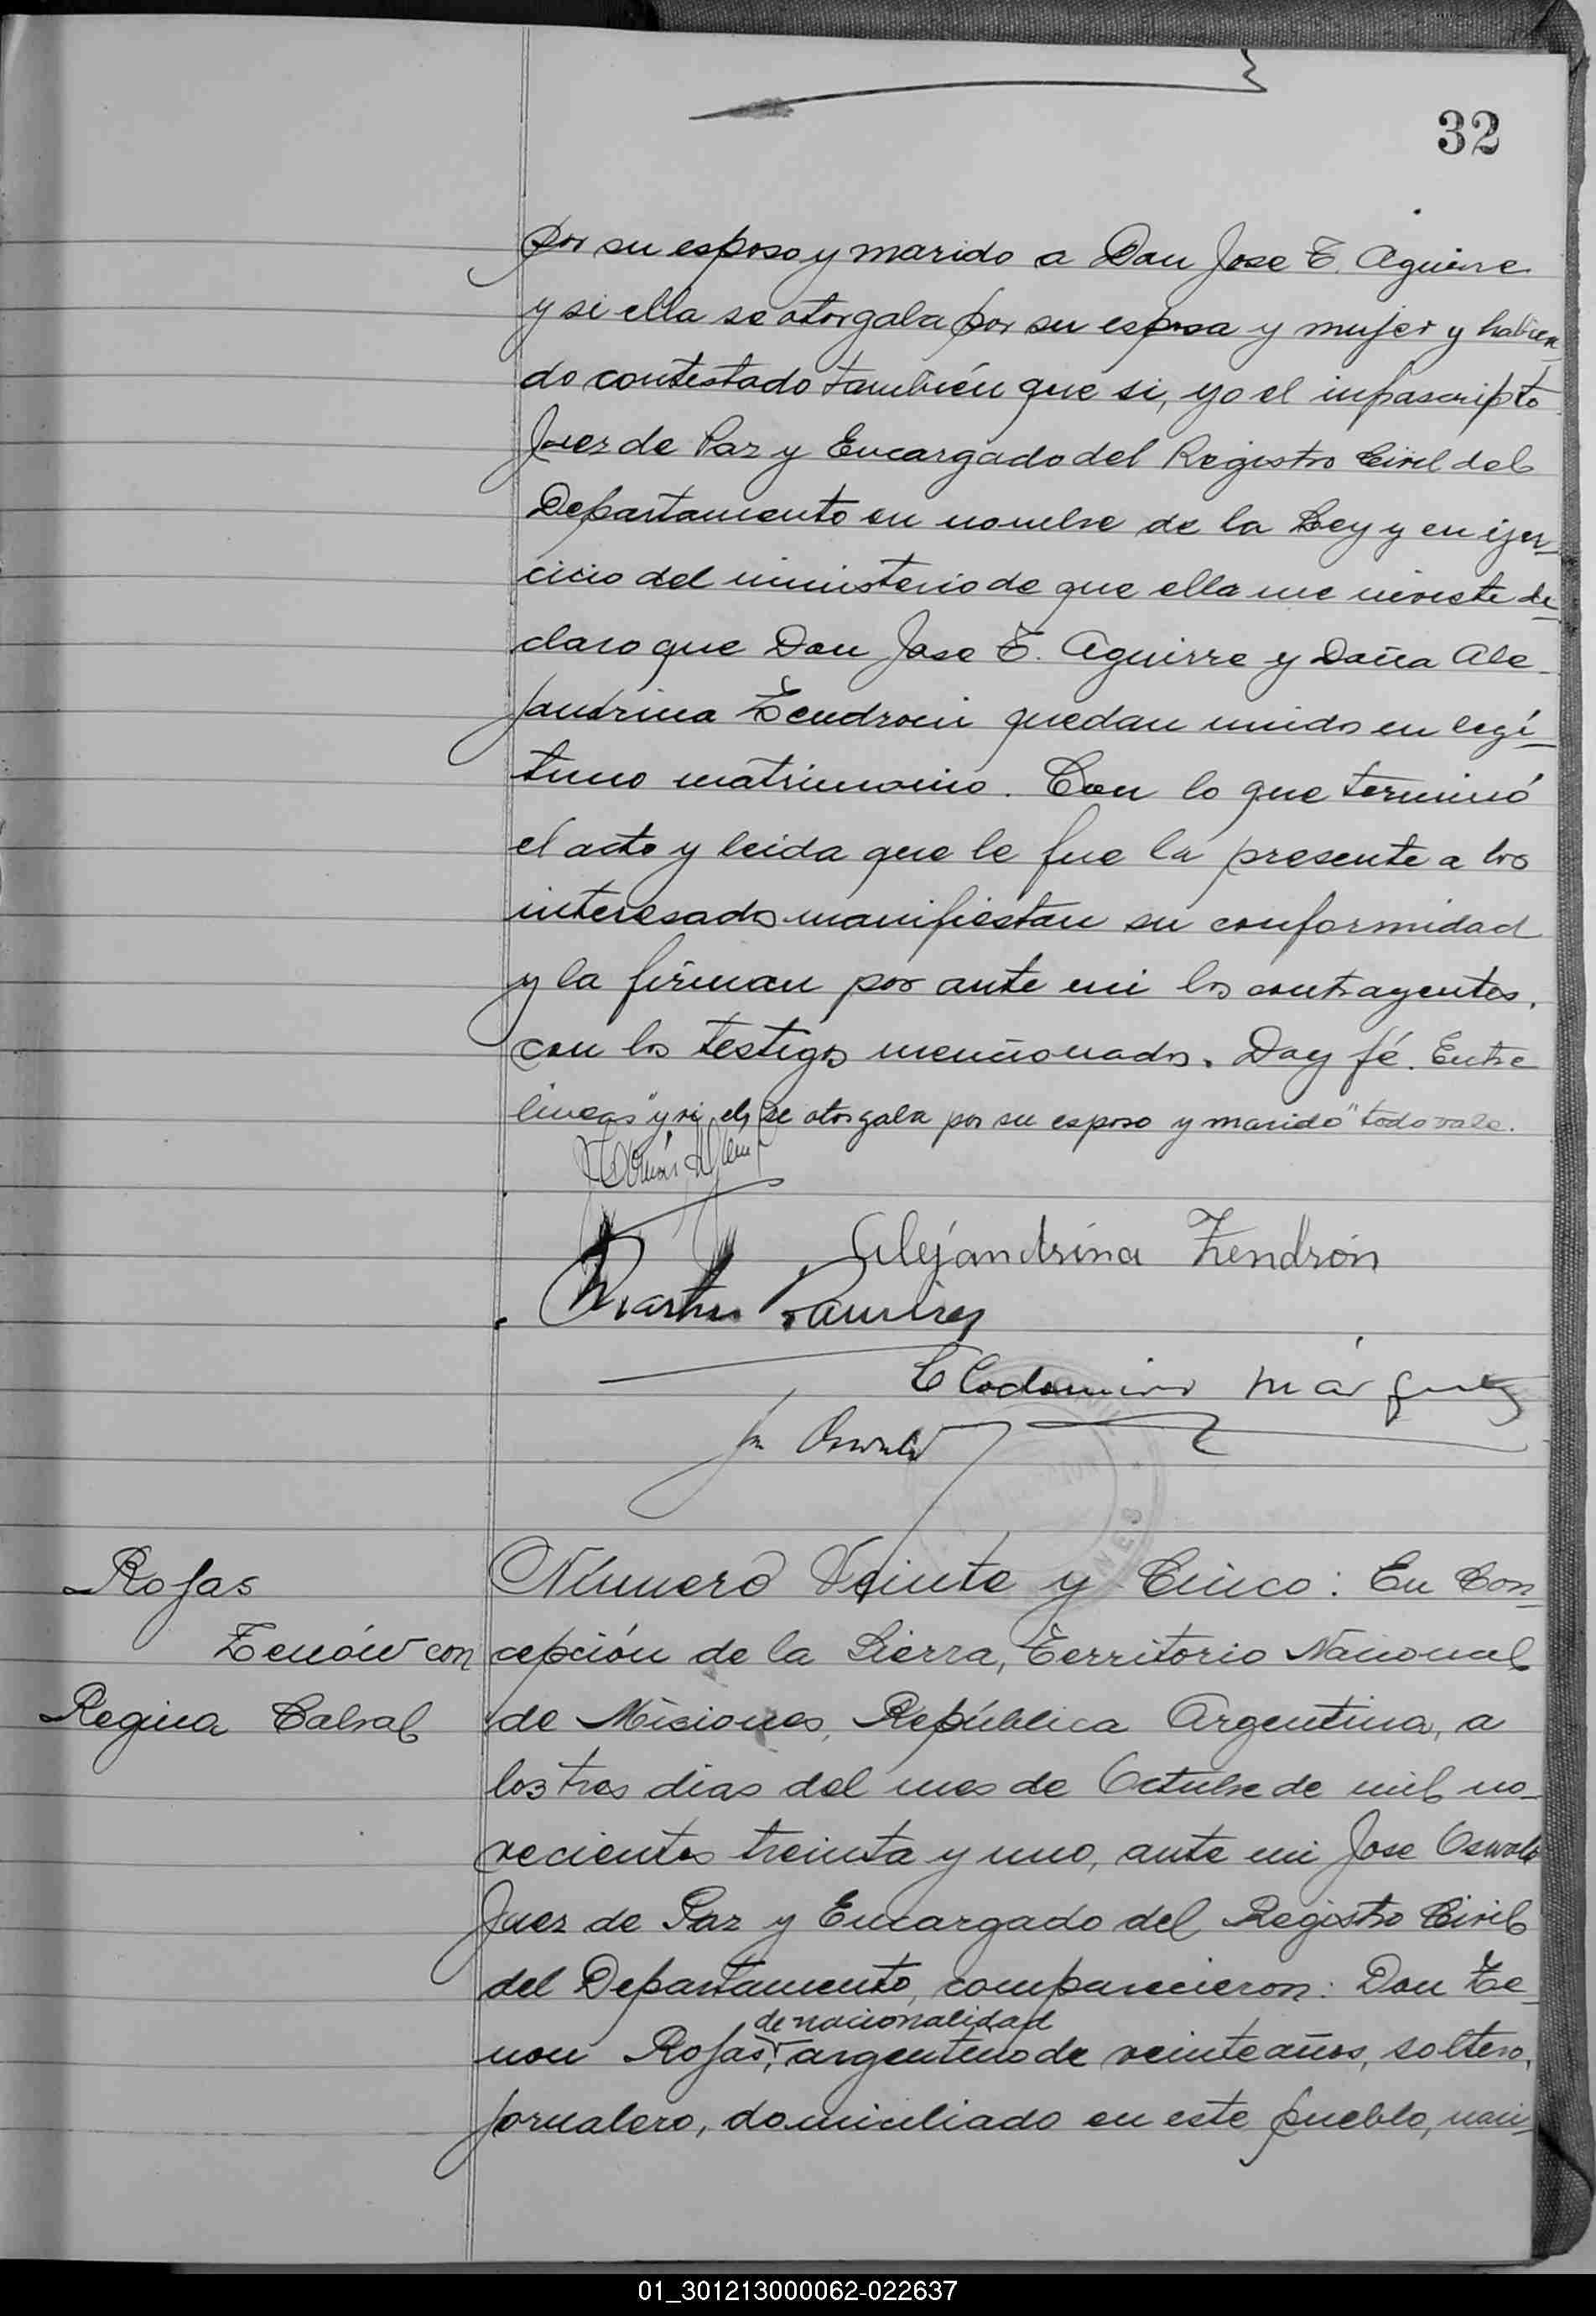 32
por su esposo y marido a Don Jose T. Aguirre
y si ella se otorgaba por su esposa y mujer y habien-
do contestado también que si, yo el infrascripto
Juez de Paz y Encargado del Registro Civil del
Departamento en nombre de la Ley y en ejer-
cicio del ministerio de que ella me inviste de-
claro que Don Jose T. Aguirre y Doña Ale-
jandrina Zendron quedan unidos en legí-
timo matrimonio. Con lo que terminó
el acto y leida que le fue la presente a los
interesados manifiestan su conformidad
y la firman por ante mi los contrayentes,
con los testigos mencionados. Doy fé. Entre
lineas "y si el se otorgaba por su esposo y marido" todo vale.
Alejandrina Zendrón
Martin Ramirez
Clodomiro Márquez
J. Oswald
Rojas
Zenón con
Regina Cabral
Número Veinte y Cinco: En Con-
cepción de la Sierra, Territorio Nacional
de Misiones, República Argentina, a
los tres dias del mes de Octubre de mil no-
vecientos treinta y uno, ante mi Jose Oswald
Juez de Paz y Encargado del Registro Civil
del Departamento, comparecieron: Don Ze-
de nacionalidad
non Rojas, argentino de veinte años, soltero,
jornalero, domiciliado en este pueblo, naci-
01_301213000062-022637